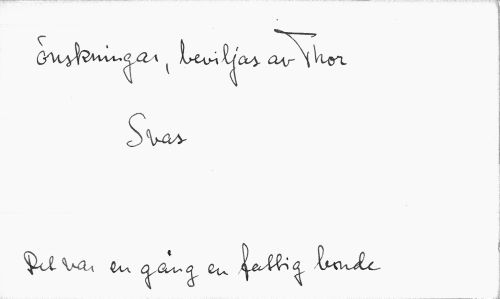 Önskningar, beviljas av Thor
Svas
Det var en gång en fattig bonde